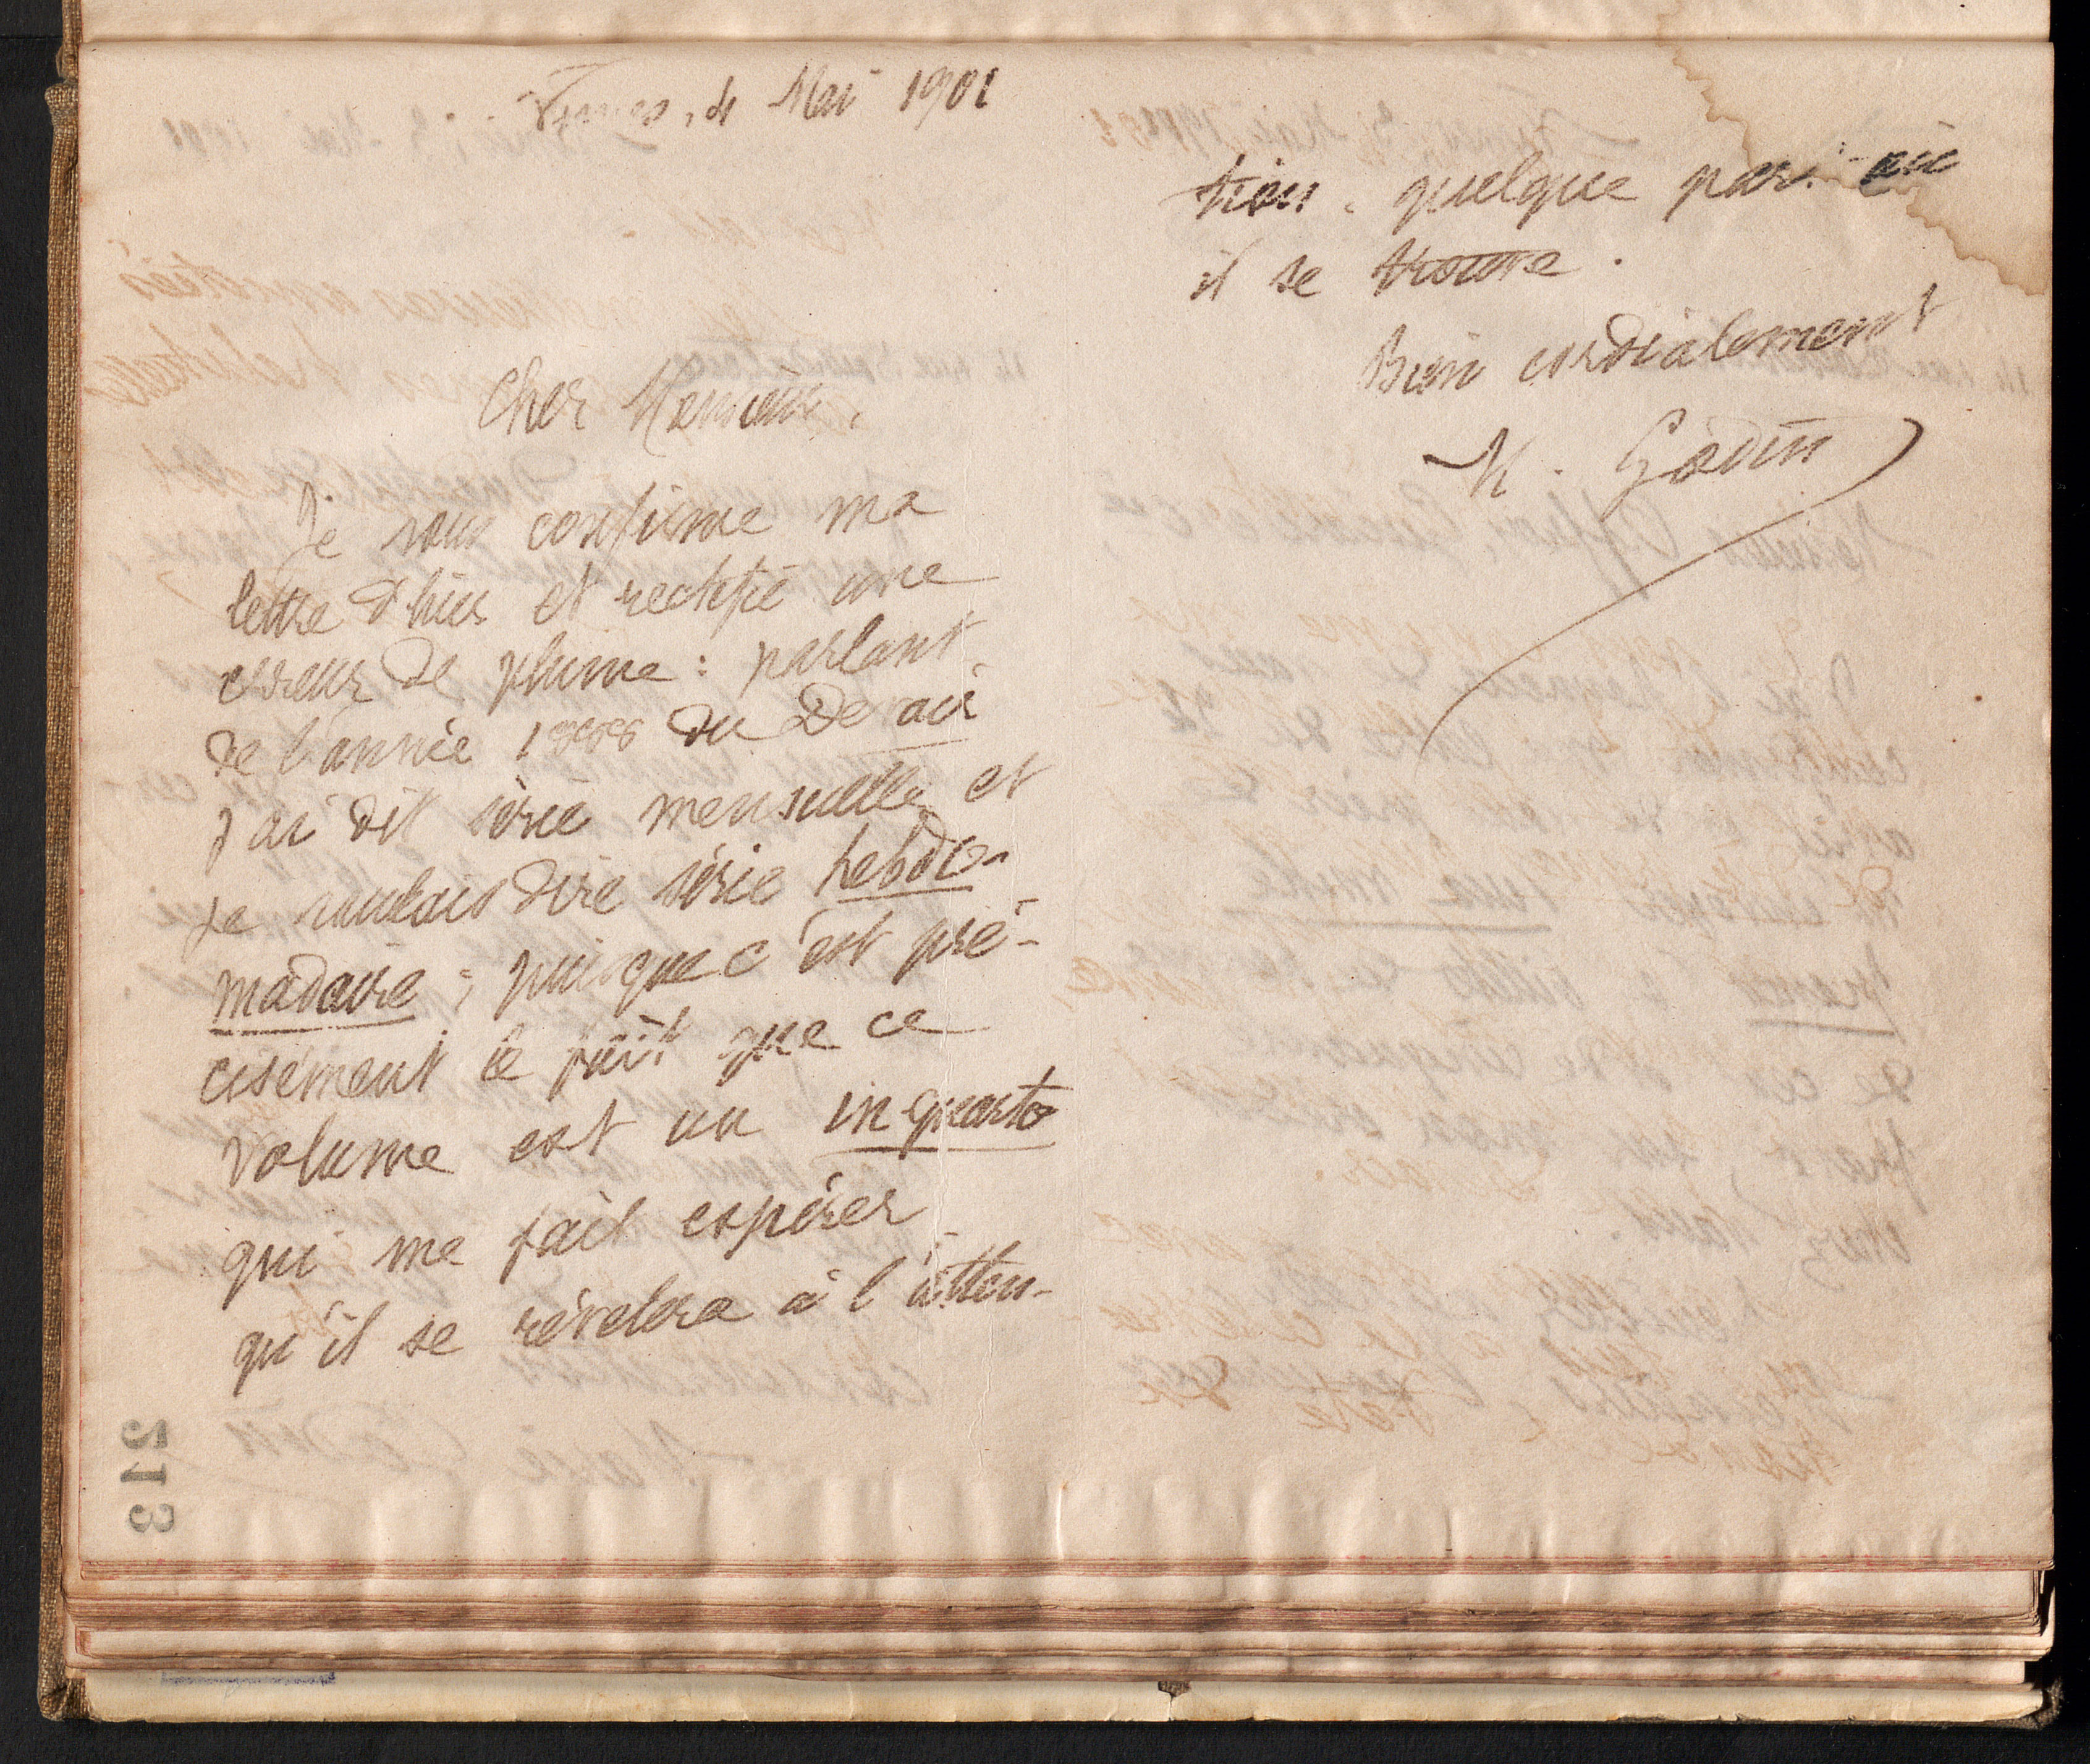 4 Mai 1901
Cher Monsieur,
Je vous confirme ma
lettre d'hier et rectifie une
erreur de plume : parlant
de l'année 1888 du Devoir
j'ai dit série mensuelle et
je voulais dire série hebdo-
madaire ; puisque c'est pré-
cisément le fait que ce
volume est un in quarto
qui me fait espérer
qu'il se révèlera à l'atten-
tion, quelque part où
il se trouve.
Bien cordialement
M. Godin
213